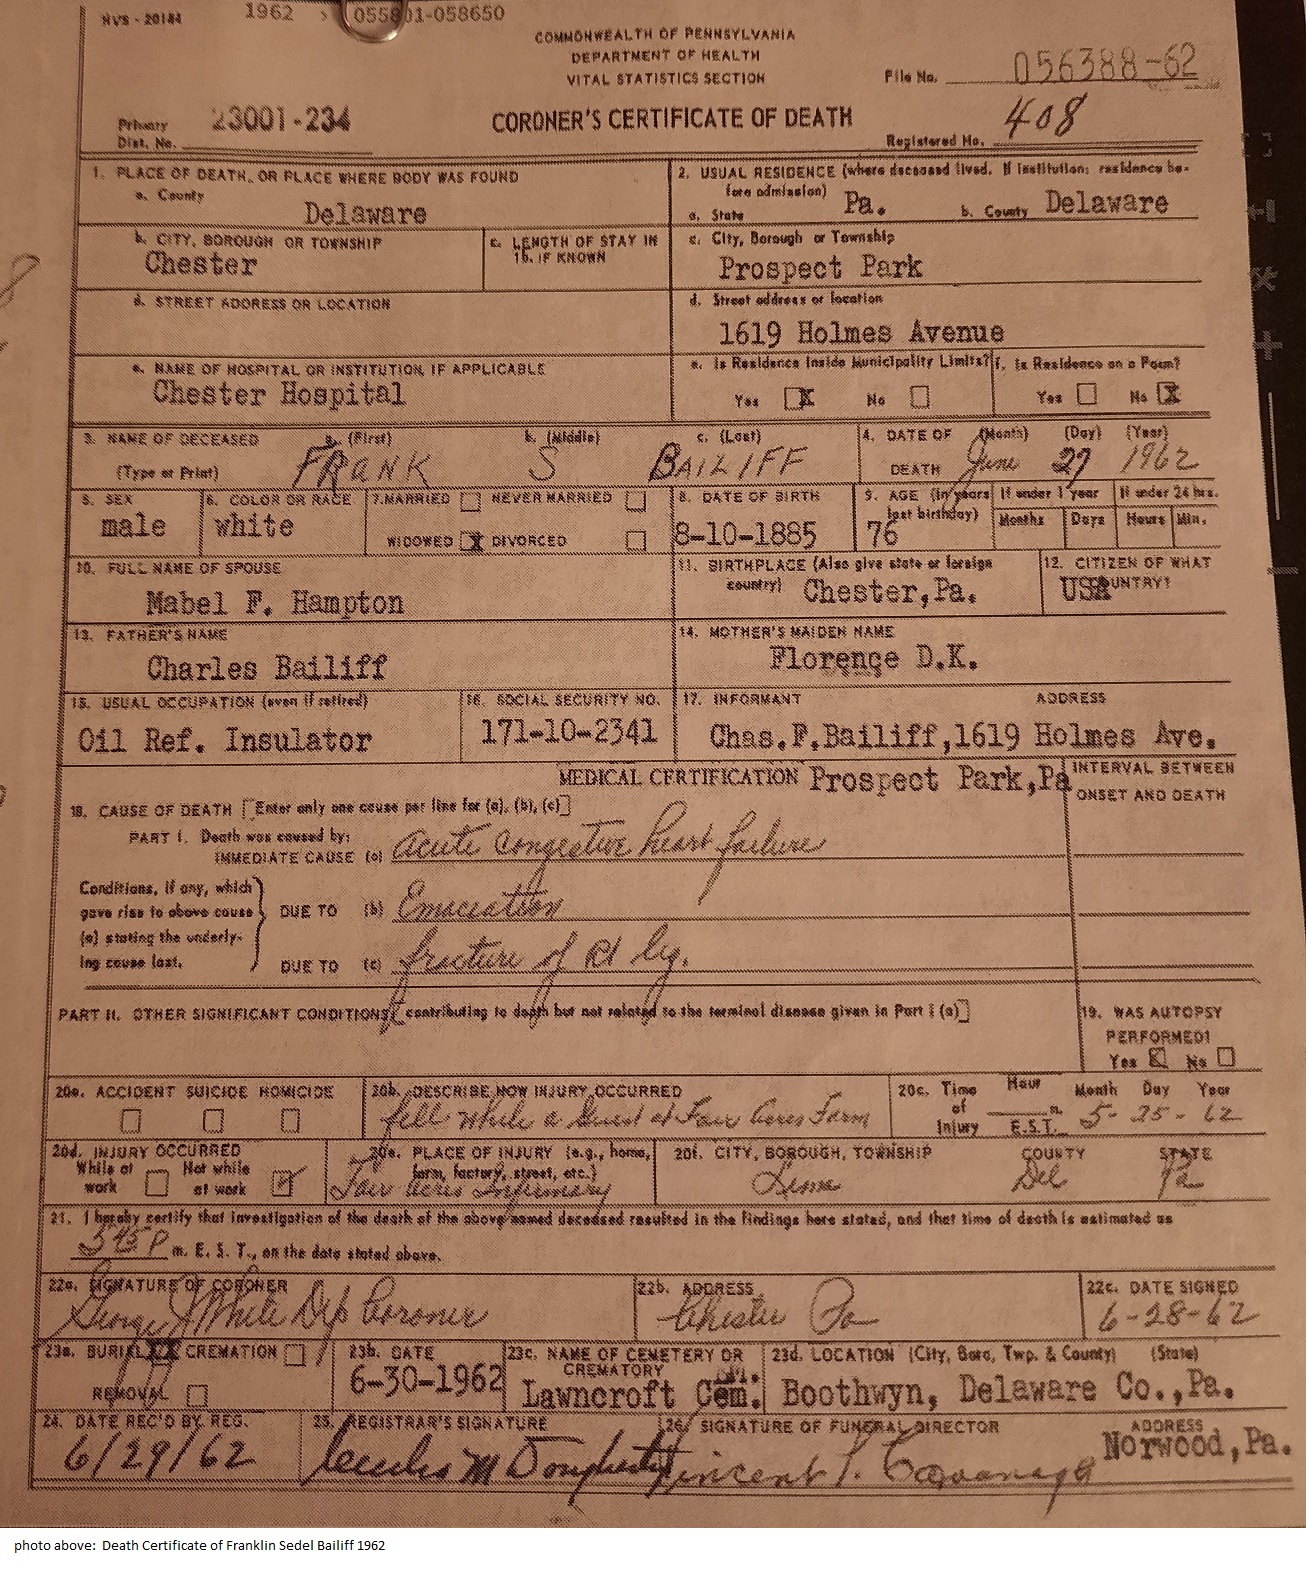 HVS - 20184 1962 > 055801-058650
COMMONWEALTH OF PENNSYLVANIA
DEPARTMENT OF HEALTH
VITAL STATISTICS SECTION
File No. 056388-62
Primary Dist. No. 23001-234
CORONER'S CERTIFICATE OF DEATH
Registered No. 408
1. PLACE OF DEATH, OR PLACE WHERE BODY WAS FOUND
a. County
Delaware
2. USUAL RESIDENCE (where deceased lived. If institution: residence be-
fore admission)
a. State Pa. b. County Delaware
b. CITY, BOROUGH OR TOWNSHIP
Chester
c. LENGTH OF STAY IN
1b. IF KNOWN
c. City, Borough or Township
Prospect Park
d. STREET ADDRESS OR LOCATION
d. Street address or location
1619 Holmes Avenue
e. NAME OF HOSPITAL OR INSTITUTION, IF APPLICABLE
Chester Hospital
e. Is Residence Inside Municipality Limits?
Yes X No
f. Is Residence on a Farm?
Yes No X
3. NAME OF DECEASED a. (First) b. (Middle) c. (Last)
(Type or Print) FRANK S BAILIFF
4. DATE OF (Month) (Day) (Year)
DEATH June 27 1962
5. SEX
male
6. COLOR OR RACE
white
7. MARRIED NEVER MARRIED
WIDOWED X DIVORCED
8. DATE OF BIRTH
8-10-1885
9. AGE (in years
last birthday)
76
If under 1 year
Months Days
If under 24 hrs.
Hours Min.
10. FULL NAME OF SPOUSE
Mabel F. Hampton
11. BIRTHPLACE (Also give state or foreign
country) Chester,Pa.
12. CITIZEN OF WHAT
COUNTRY?
USA
13. FATHER'S NAME
Charles Bailiff
14. MOTHER'S MAIDEN NAME
Florence D.K.
15. USUAL OCCUPATION (even if retired)
Oil Ref. Insulator
16. SOCIAL SECURITY NO.
171-10-2341
17. INFORMANT ADDRESS
Chas.F.Bailiff,1619 Holmes Ave.
MEDICAL CERTIFICATION Prospect Park,Pa
INTERVAL BETWEEN
ONSET AND DEATH
18. CAUSE OF DEATH [Enter only one cause per line for (a), (b), (c)]
PART I. Death was caused by:
IMMEDIATE CAUSE (a) acute congestive heart failure
Conditions, if any, which
gave rise to above cause
(a) stating the underly-
ing cause last.
DUE TO (b) Emaciation
DUE TO (c) fracture of Rt leg.
PART II. OTHER SIGNIFICANT CONDITIONS [contributing to death but not related to the terminal disease given in Part I (a)]
19. WAS AUTOPSY
PERFORMED?
Yes X No
20a. ACCIDENT SUICIDE HOMICIDE
20b. DESCRIBE HOW INJURY OCCURRED
fell while a Guest at Fair Acres Farm
20c. Time
of
Injury
Hour
m.
E.S.T.
Month Day Year
5-25-62
20d. INJURY OCCURRED
While at
work
Not while
at work
20e. PLACE OF INJURY (e.g., home,
farm, factory, street, etc.)
Fair Acres Infirmary
20f. CITY, BOROUGH, TOWNSHIP COUNTY STATE
Lima Del Pa
21. I hereby certify that investigation of the death of the above named deceased resulted in the findings here stated, and that time of death is estimated as
545P m. E. S. T., on the date stated above.
22a. SIGNATURE OF CORONER
George J White Dep Coroner
22b. ADDRESS
Chester Pa
22c. DATE SIGNED
6-28-62
23a. BURIAL XX CREMATION
REMOVAL
23b. DATE
6-30-1962
23c. NAME OF CEMETERY OR
CREMATORY
Lawncroft Cem.
23d. LOCATION (City, Boro, Twp. & County) (State)
Boothwyn, Delaware Co.,Pa.
24. DATE REC'D BY REG.
6/29/62
25. REGISTRAR'S SIGNATURE
M Dougherty
26. SIGNATURE OF FUNERAL DIRECTOR
Vincent Cavanagh
ADDRESS
Norwood,Pa.
photo above: Death Certificate of Franklin Sedel Bailiff 1962